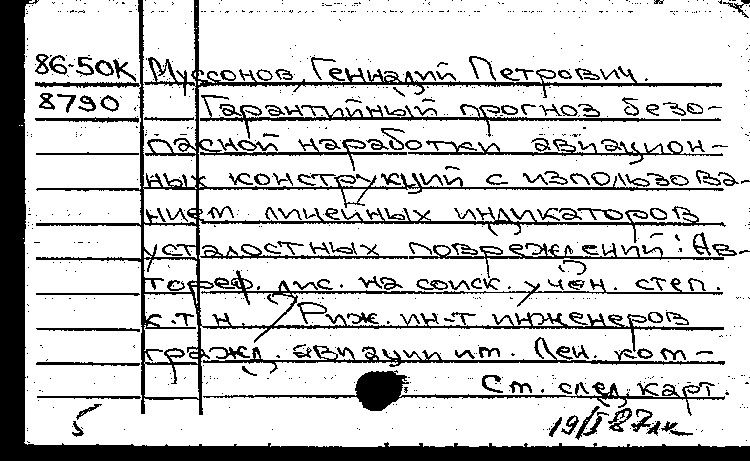 86-50К Муссонов, Геннадий Петрович.
8790 Гарантийный прогноз безо-
пасной наработки авиацион-
ных конструкций с использова-
нием линейных индикаторов
усталостных повреждений: Ав-
тореф. дис. на соиск. учен. степ.
к.т.н. Риж. ин-т инженеров
гражд. авиации им. Лен. ком-
См. след. карт.
5 19/I 87